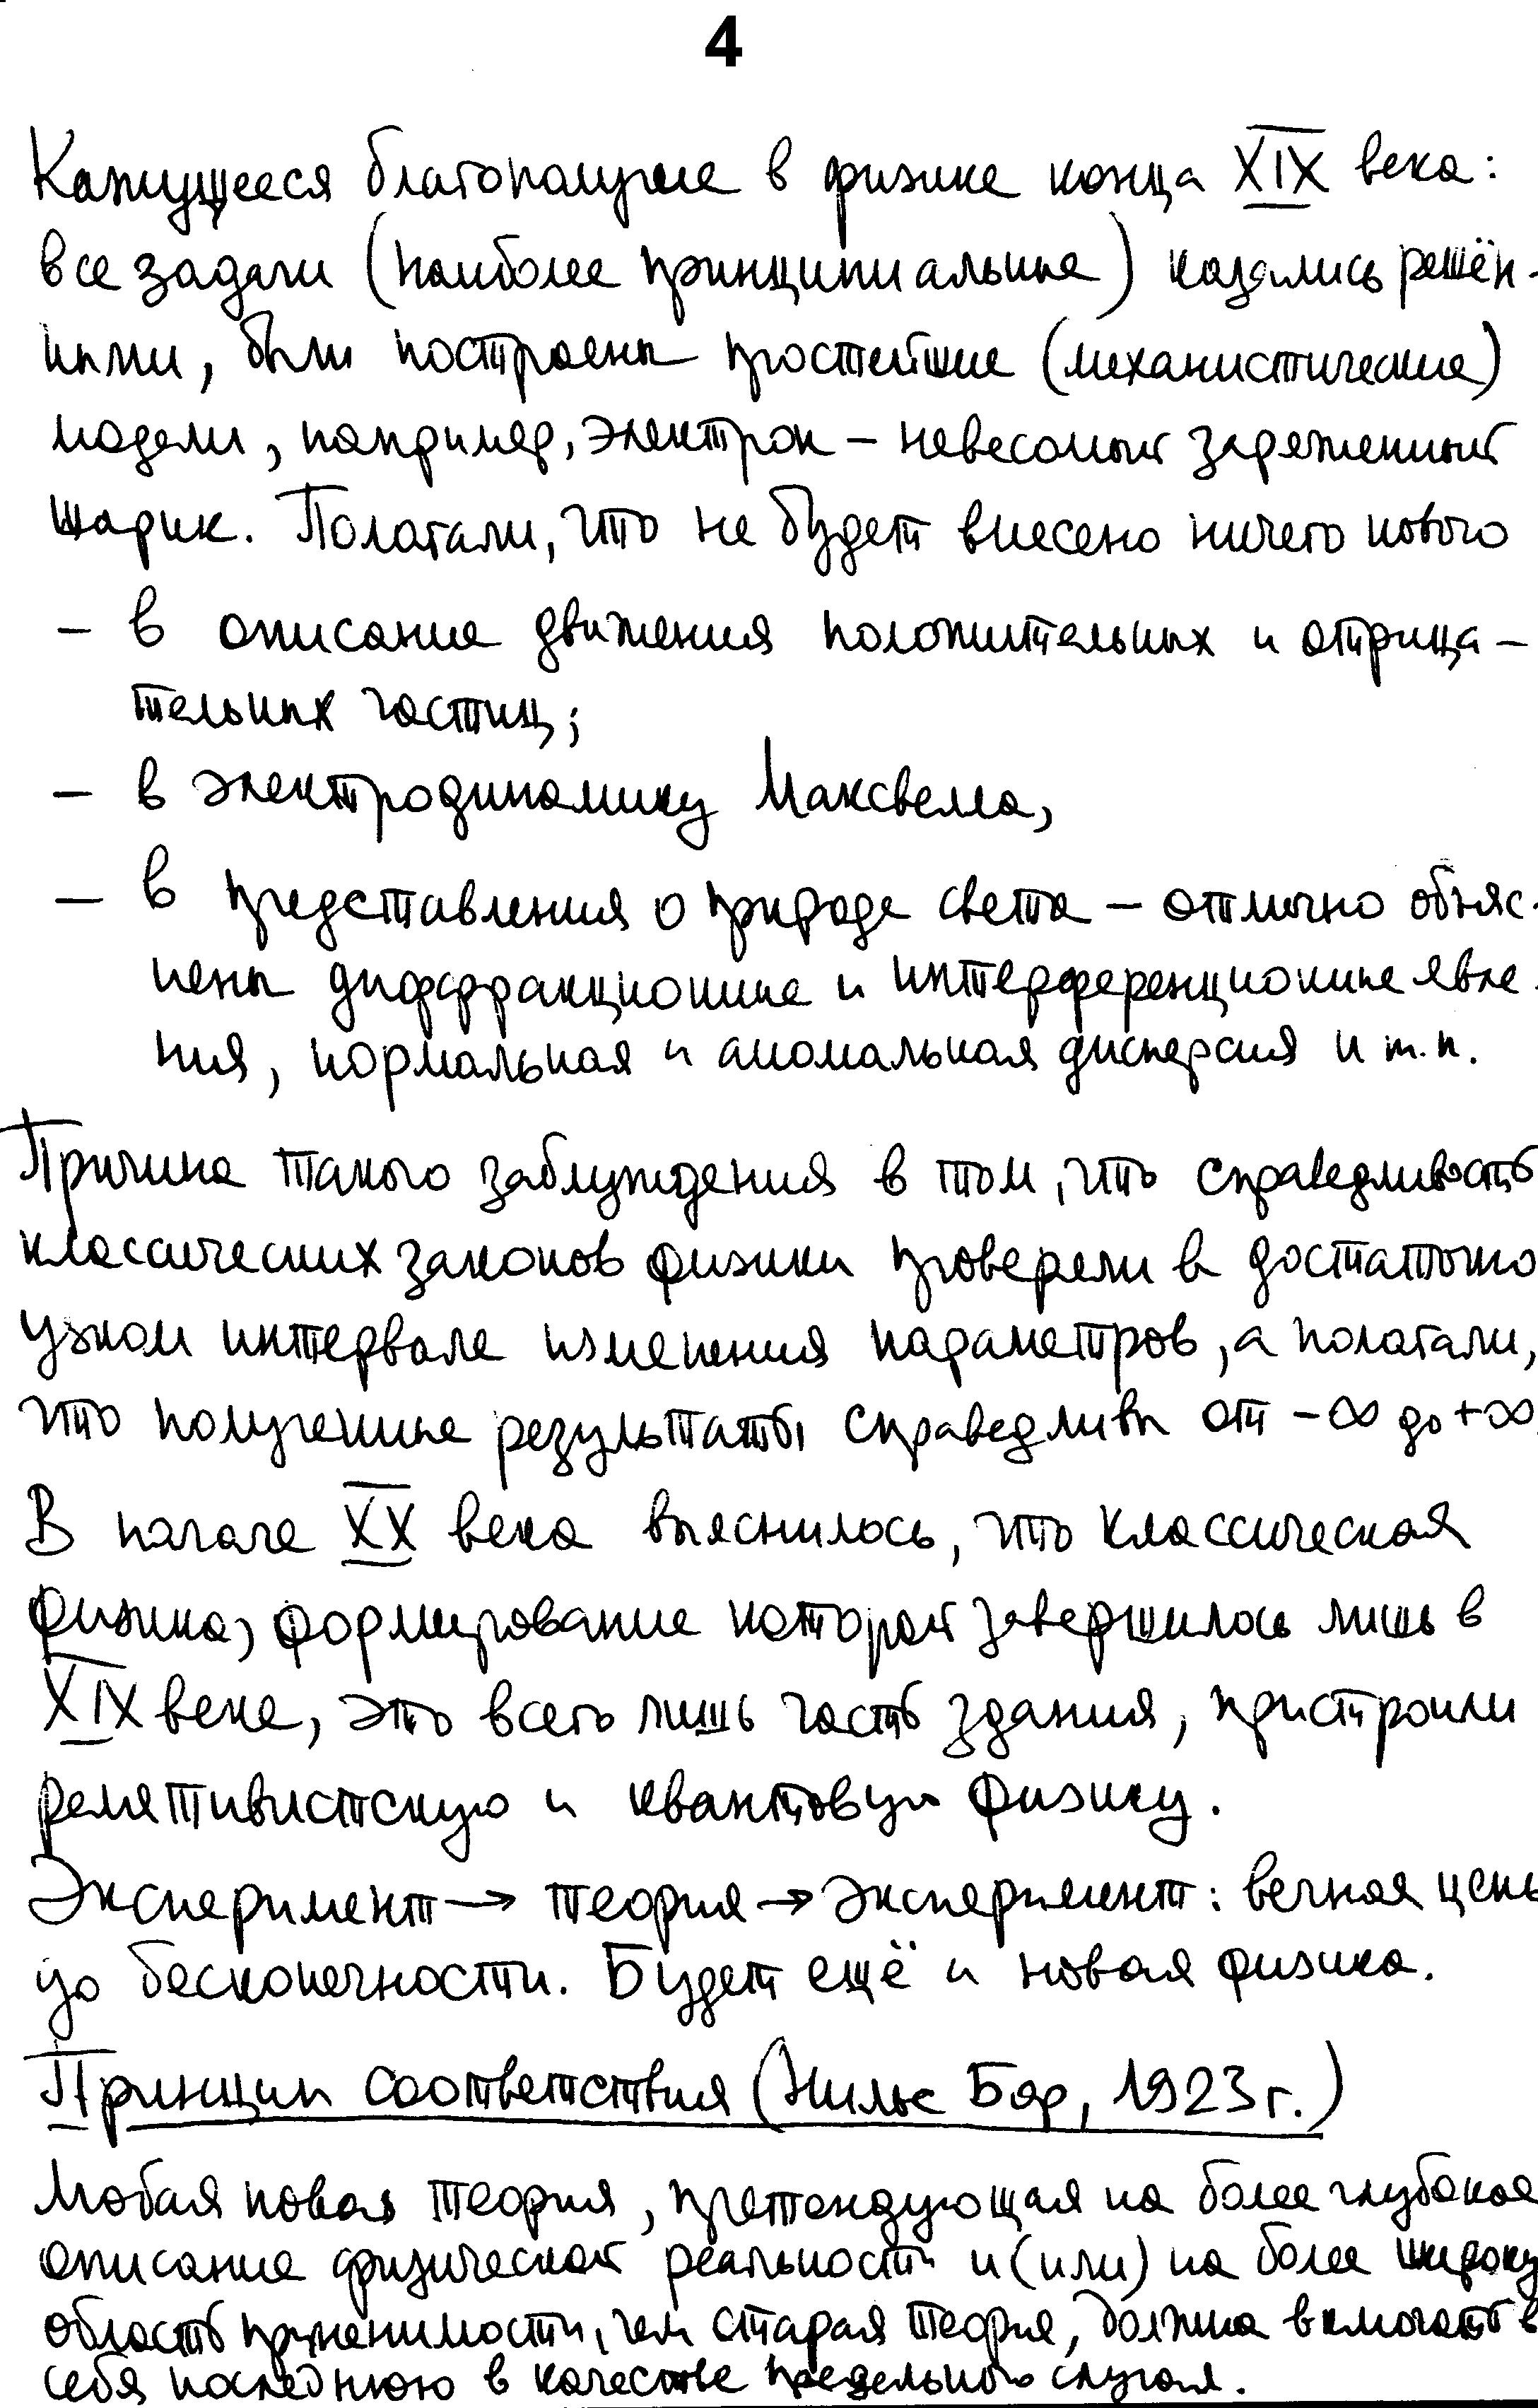 4
Кажущееся благополучие в физике конца XIX века:
все задачи (наиболее принципиальные) казались решён-
ными, были построены простейшие (механистические)
модели, например, электрон – невесомый заряженный
шарик. Полагали, что не будет внесено ничего нового
– в описание движения положительных и отрица-
тельных частиц;
– в электродинамику Максвелла,
– в представления о природе света – отлично объяс-
нены диффракционные и интерференционные явле-
ния, нормальная и аномальная дисперсия и т.п.
Причина такого заблуждения в том, что справедливость
классических законов физики проверяли в достаточно
узком интервале изменения параметров, а полагали,
что полученные результаты справедливы от –∞ до +∞.
В начале XX века выяснилось, что классическая
физика, формирование которой завершилось лишь в
XIX веке, это всего лишь часть здания, пристроили
релятивистскую и квантовую физику.
Эксперимент → теория → эксперимент: вечная цепь
до бесконечности. Будет ещё и новая физика.
Принцип соответствия (Нильс Бор, 1923 г.)
Любая новая теория, претендующая на более глубокое
описание физической реальности и (или) на более широкую
область применимости, чем старая теория, должна включать в
себя последнюю в качестве предельного случая.